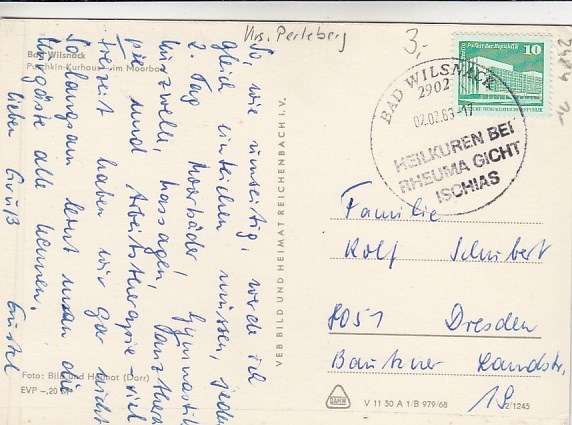 Krs. Perleberg
3,-
Bad Wilsnack
Puschkin-Kurhaus im Moorbad
So, wie umseitig, werde ich
gleich einteichen müssen, jeden
2. Tag Moorbäder, Gymnastik
kurzwelle, Massagen, Tanzthera
pie und Arbeitstherapie - viel
Freizeit haben wir gar nicht
So langsam lernt man die
Kurgäste alle kennen.
Lieber Gruß
Foto: Bild und Heimat (Darr)
EVP -,20 M
VEB BILD UND HEIMAT REICHENBACH I. V.
Palast der Republik
10
DEUTSCHE DEMOKRATISCHE REPUBLIK
BAD WILSNACK
2902
02.02.83-17
HEILKUREN BEI
RHEUMA GICHT
ISCHIAS
Familie
Rolf Schubert
8051 Dresden
Bautzner Landstr.
19
V 11 50 A 1/B 979/68
2/1245